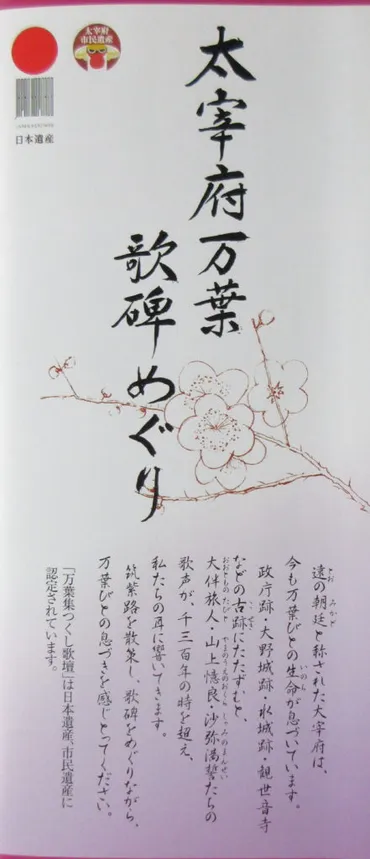 太宰府
市民遺産
日本遺産
太宰府万葉
歌碑めぐり
遠の朝廷と称された大宰府は、
とお みかど
今も万葉びとの生命が息づいています。
いのち
政庁跡・大野城跡・水城跡・観世音寺
などの古跡にたたずむと、
大伴旅人・山上憶良・沙弥満誓たちの
おおとものたびと やまのうえのおくら しゃみのまんせい
歌声が、千三百年の時を超え、
私たちの耳に響いてきます。
筑紫路を散策し、歌碑をめぐりながら、
万葉びとの息づきを感じとってください。
「万葉集つくし歌壇」は日本遺産、市民遺産に
認定されています。